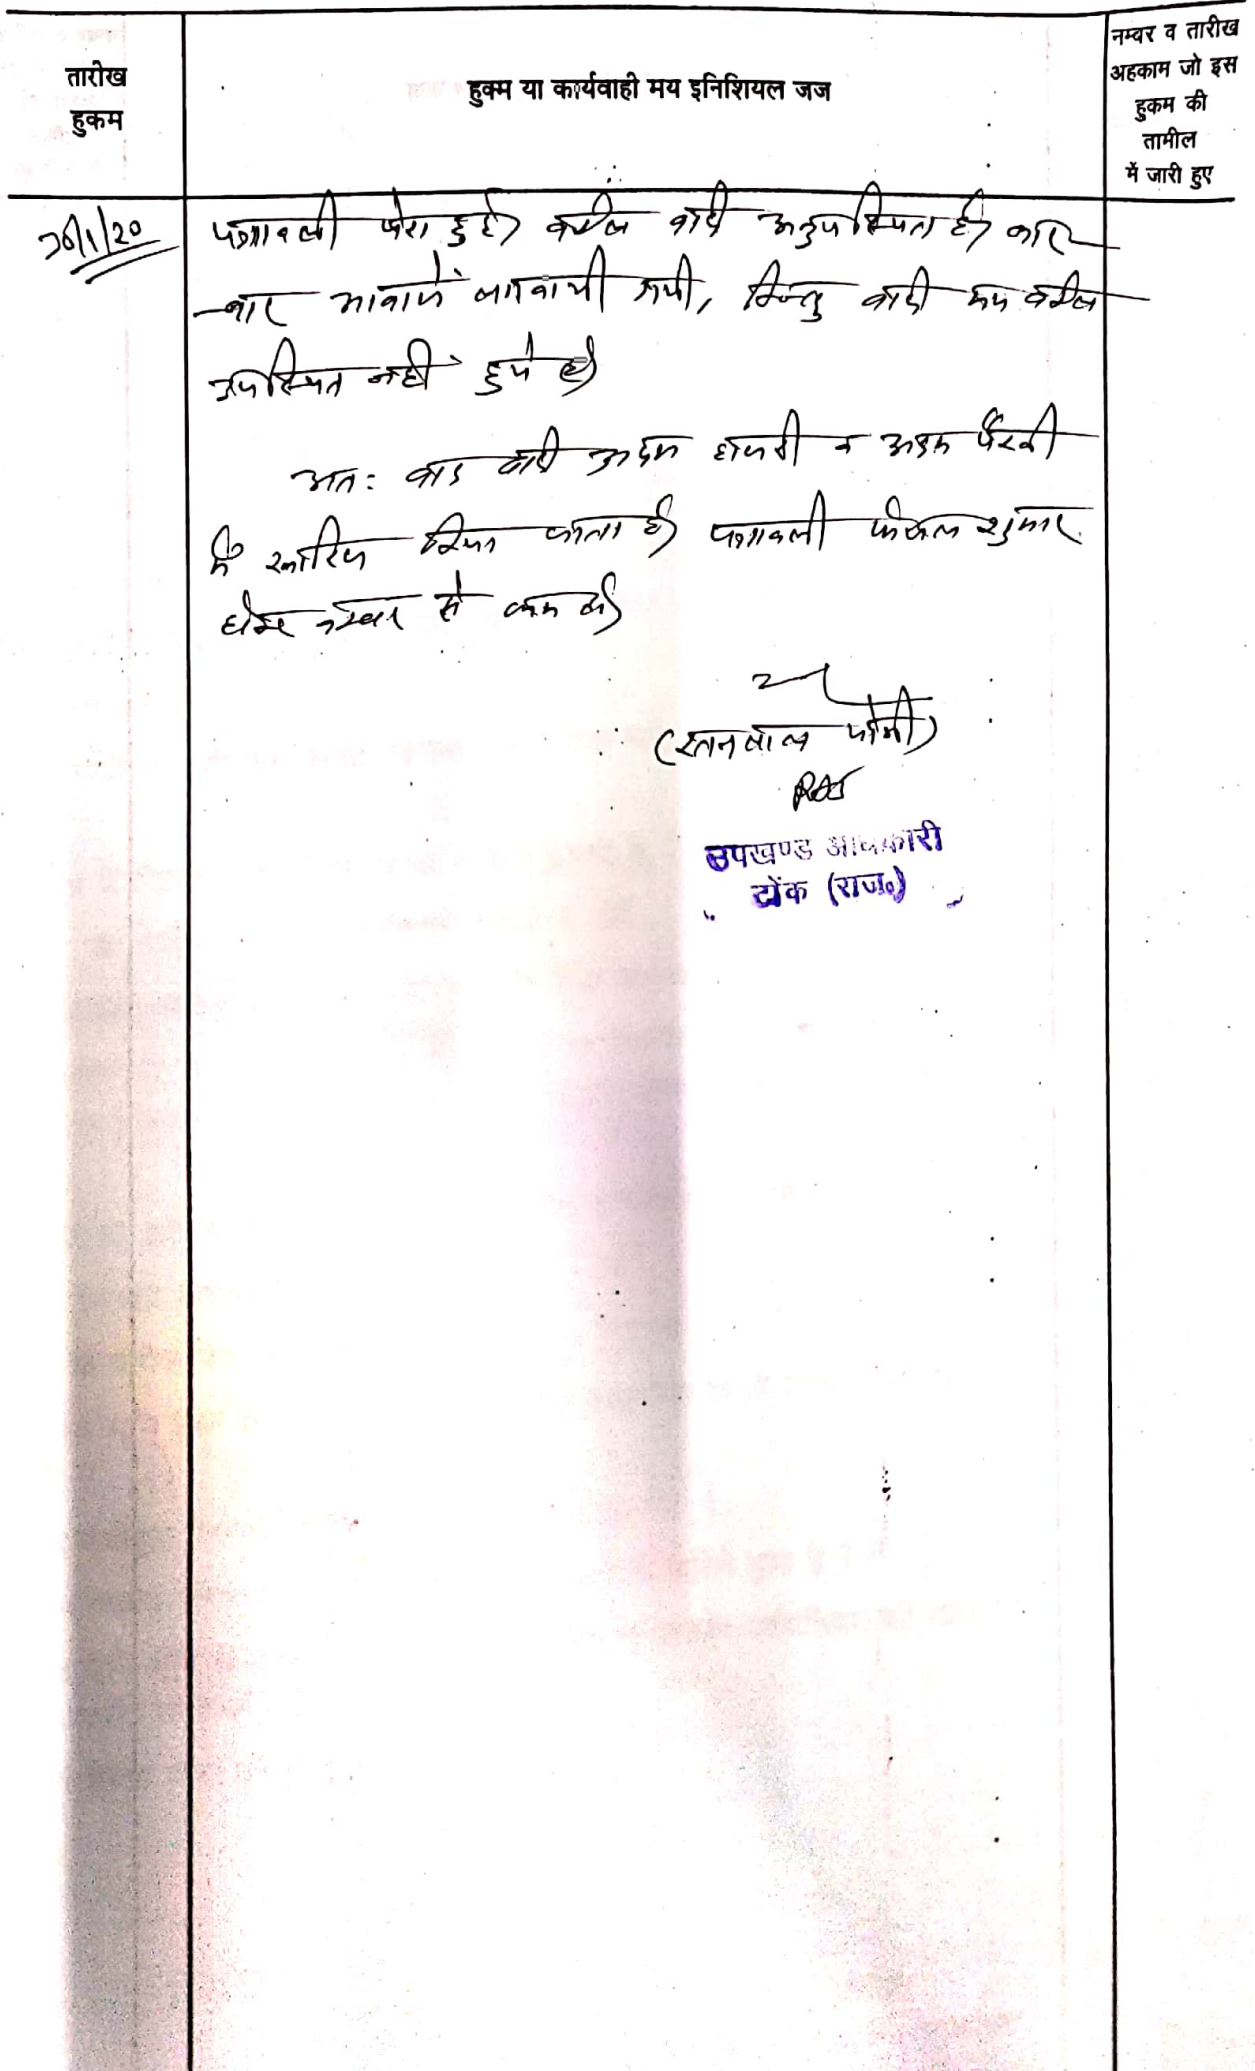 तारीख
हुकम
हुक्म या कार्यवाही मय इनिशियल जज
नम्बर व तारीख
अहकाम जो इस
हुकम की
तामील
में जारी हुए
पत्रावली पेश हुई। वकील वादी अनुपस्थित है। बार-
-बार आवाजें लगवायी गयी, किन्तु वादी मय वकील
उपस्थित नहीं हुये है।
अतः वाद वादी अदम हाजरी व अदम पैरवी
में खारिज किया जाता है। पत्रावली फैसल शुमार
होकर नम्बर से कम हो।
(रतनलाल योगी)
RAS
उपखण्ड अधिकारी
टोंक (राज०)